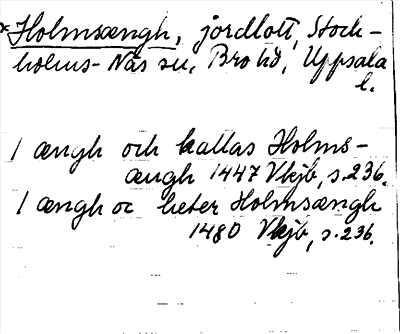 *Holmsængh, jordlott, Stock-
holms-Näs sn, Bro hd, Uppsala
l.
1 ængh och kallas Holms-
ængh 1447 Vkjb, s.236.
1 ængh oc heter Holmsængh
1480 Vkjb, s.236.